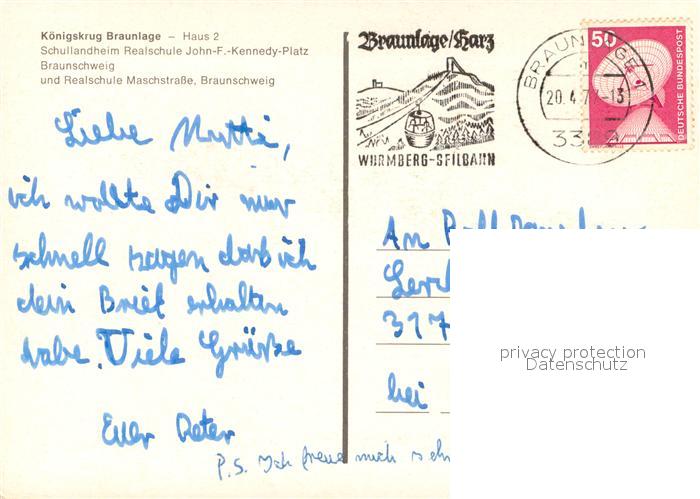 Königskrug Braunlage – Haus 2
Schullandheim Realschule John-F.-Kennedy-Platz
Braunschweig
und Realschule Maschstraße, Braunschweig
Braunlage/Harz
WURMBERG-SEILBAHN
BRAUNLAGE 1
20.4.7 -13
50
DEUTSCHE BUNDESPOST
Liebe Mutti,
ich wollte Dir nur
schnell sagen daß ich
dein Brief erhalten
habe. Viele Grüße
Euer Peter
P.S. Ich freue mich sehr
An
317
bei
privacy protection
Datenschutz